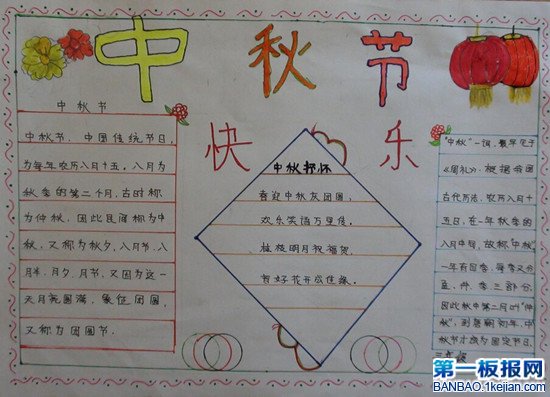 中秋节
快乐
中秋节
中秋节，中国传统节日，
为每年农历八月十五。八月为
秋季的第二个月，古时称
为仲秋，因此民间称为中
秋，又称为秋夕，八月节，八
月半，月夕，月节，又因为这一
天月亮圆满，象征团圆，
又称为团圆节。
中秋抒怀
喜迎中秋友团圆，
欢乐笑语万里传。
桂枝明月祝福贺，
贺好花开成佳缘。
"中秋"一词，最早见于
《周礼》。根据我国
古代历法，农历八月十
五日，在一年秋季的
八月中旬，故称"中秋"。
一年有四季，每季又分
孟、仲、季三部分，
因此秋中第二月叫"仲
秋"，到唐朝初年，中
秋节才成为固定节日。
第一板报网
BANBAO.1kejian.com